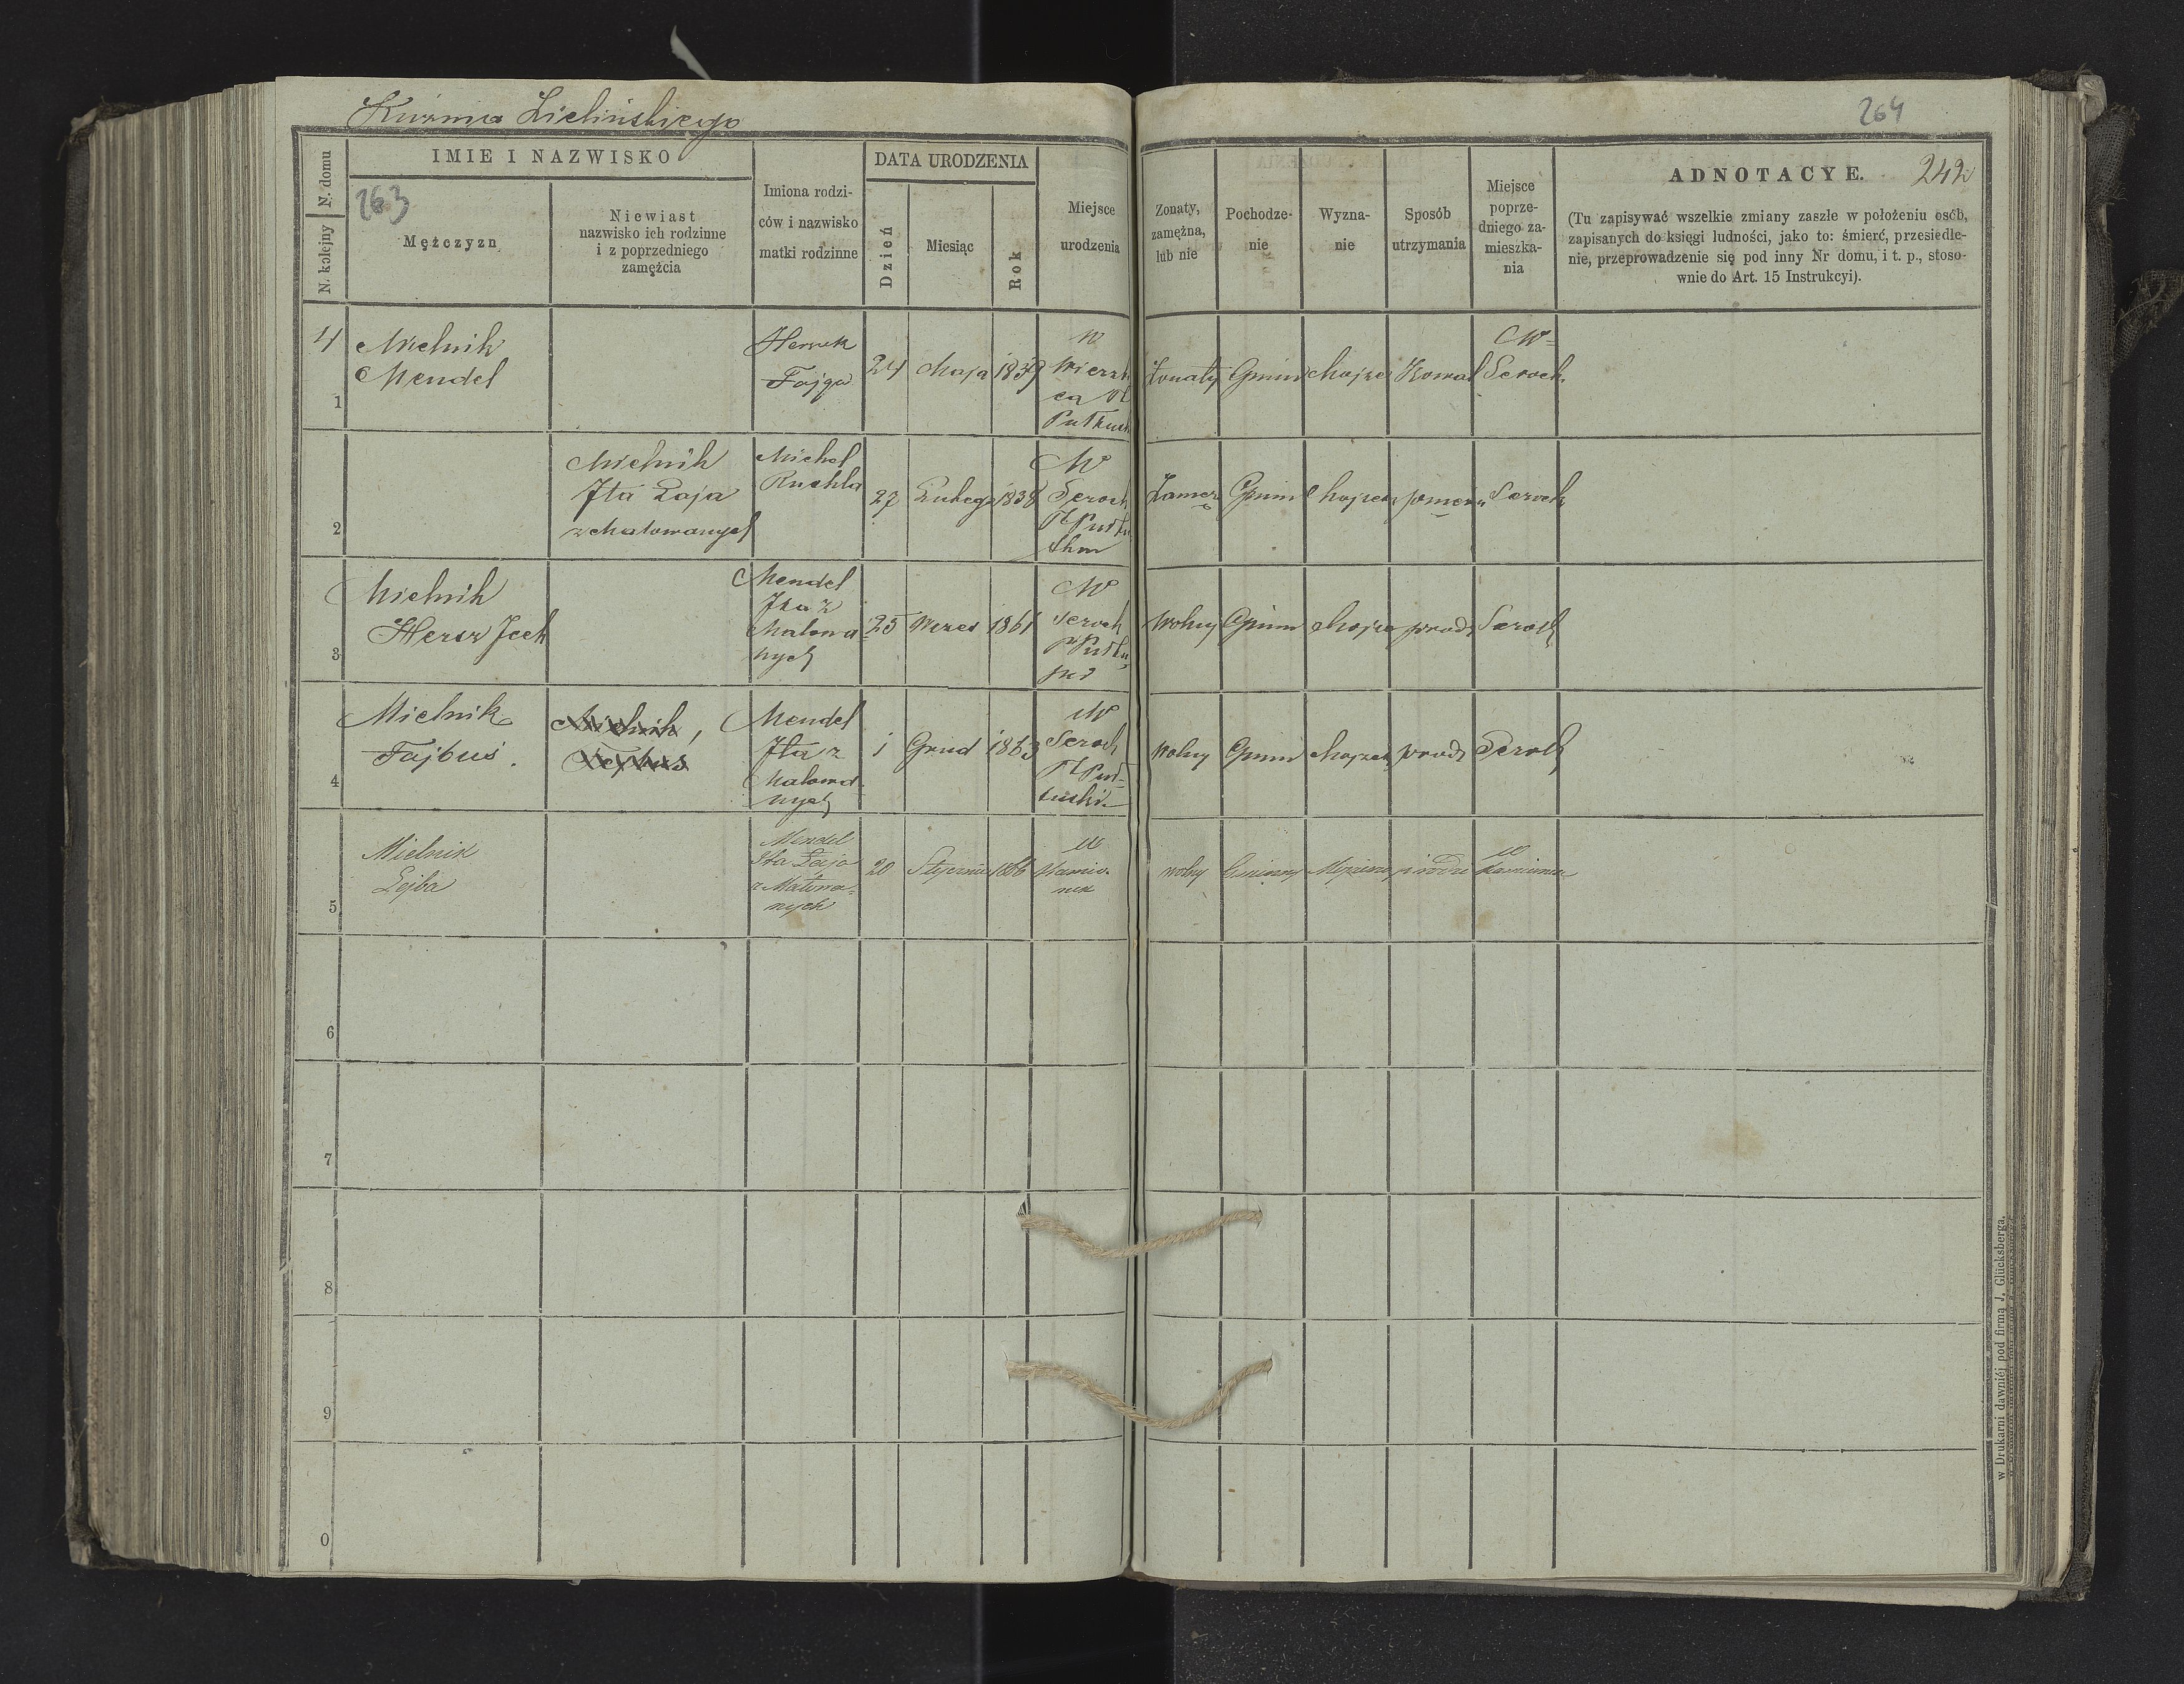 Kuźnia Zielińskiego
264
N. domu
N. kolejny
IMIE I NAZWISKO
263
Mężczyzn
Niewiast
nazwisko ich rodzinne
i z poprzedniego
zamęźcia
Imiona rodzi-
ców i nazwisko
matki rodzinne
DATA URODZENIA
Dzień
Miesiąc
Rok
Miejsce
urodzenia
Zonaty,
zamężna,
lub nie
Pochodze-
nie
Wyzna-
nie
Sposób
utrzymania
Miejsce
poprze-
dniego za-
mieszka-
nia
ADNOTACYE.
242
(Tu zapisywać wszelkie zmiany zaszłe w położeniu osób,
zapisanych do księgi ludności, jako to: śmierć, przesiedle-
nie, przeprowadzenie się pod inny Nr domu, i t. p., stoso-
wnie do Art. 15 Instrukcyi).
4
1
Mielnik
Mendel
Herszk
Fajga
24
Maja
1839
w
Pułtusk
Żonaty
Gmin
Mojże
Kowal
W
Serock
2
Mielnik
Ita Łaja
z Malowanych
Michel
Ruchla
27
Lutego
1838
W
Serock
Zamęż
Gmin
Mojżesz
Serock
3
Mielnik
Hersz Icek
Mendel
Ita z
Malowa
nych
25
Wrzes
1861
W
Serock
Wolny
Gmin
Mojże
prodz
Serock
4
Mielnik
Fajbus.
Mielnik,
Fejbus
Mendel
Ita z
Malowa
nych
1
Grud
1863
W
Serock
Pt Puł-
tuski.
Wolny
Gmin
Mojżesz
prodz
Serock
5
Mielnik
Lejba
Mendel
Ita Łaja
z Malowa-
nych
20
Stycznia
1866
w
Kamio-
nek
wolny
Gminny
Mojżesz
w
6
7
8
9
0
w Drukarni dawniéj pod firmą J. Glücksberga.